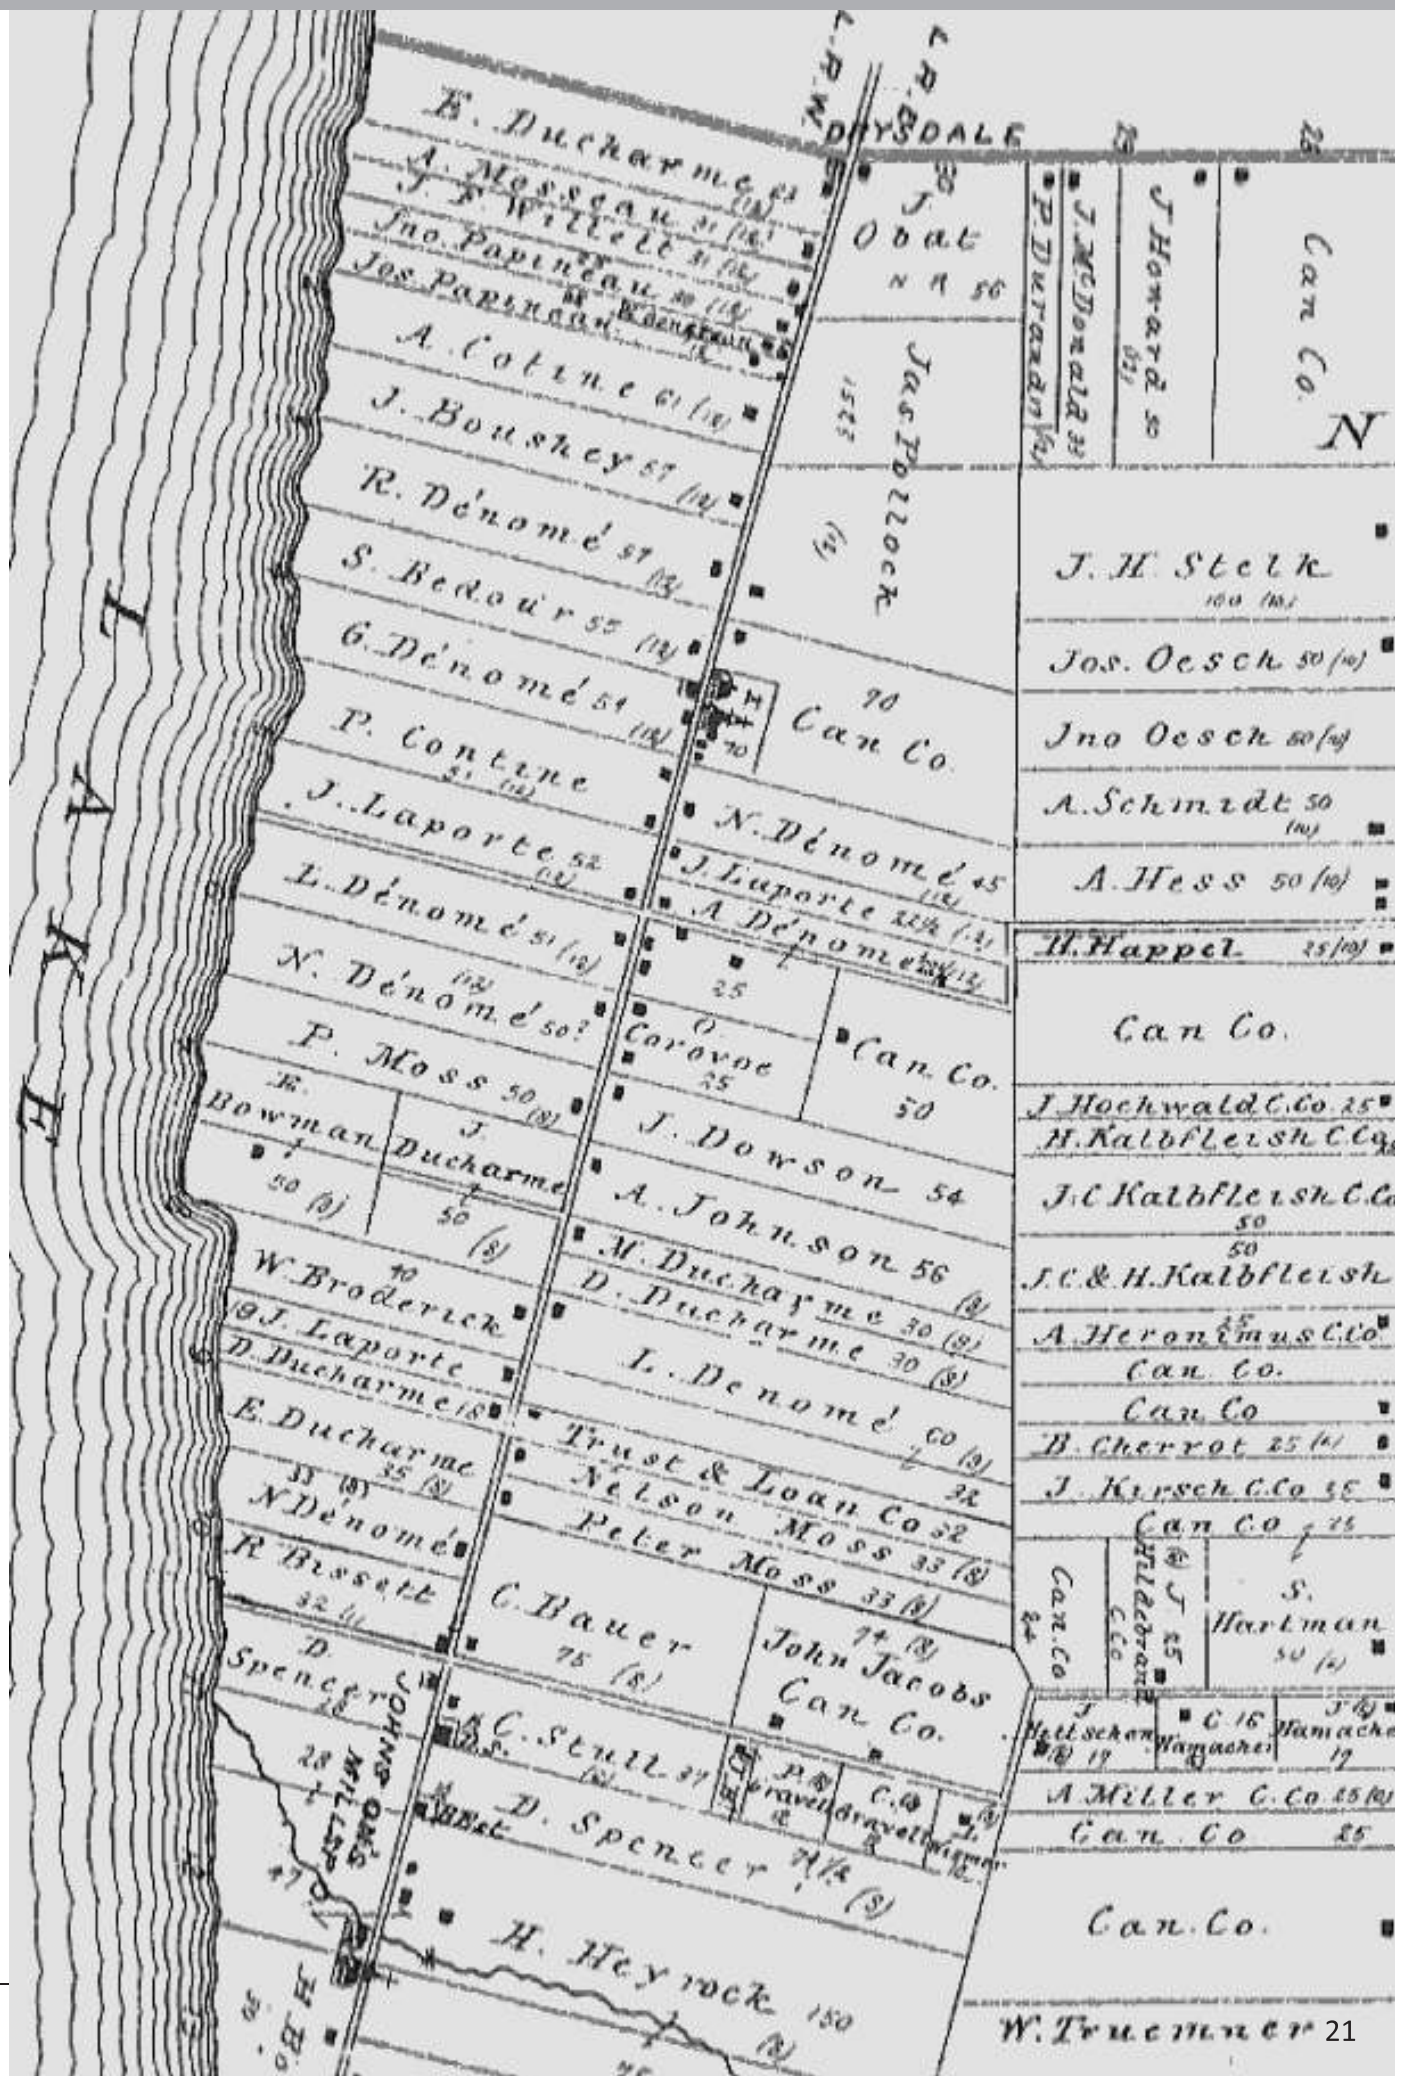 L.R.W.
L.R.E.
DRYSDALE
30
29
28
E. Ducharme
(12)
A. Mosseau 31 (12)
J. F. Willett 31 (12)
Jno. Papineau 30 (12)
Jos. Papineau
A. Cotine 61 (12)
J. Boushey 57 (12)
R. Dénomé 57 (12)
S. Bedour 55 (12)
G. Dénomé 54 (12)
P. Contine
(12)
J. Laporte 52
(12)
L. Dénomé 51 (12)
N. Dénomé 50?
(12)
P. Moss 50 (8)
E. Bowman
50 (8)
J. Ducharme
50 (8)
W. Broderick
40
19 J. Laporte
D. Ducharme 18
E. Ducharme
35 (8)
33 (8)
N Dénomé
R Bissett
32
D. Spencer
28
28
47
JOHNSTONES
MILLS P.O.
J. Obat
N R 56
Jas. Pollock
(12)
70
Can Co.
10
N. Dénomé 45
(12)
J. Laporte 22½ (12)
A Dénomé 22½ (12)
25
O. Corovoe
25
Can. Co.
50
J. Dowson 54
A. Johnson 56 (8)
M. Ducharme 30 (8)
D. Ducharme 30 (8)
L. Denomé 60 (8)
Trust & Loan Co 32
32
Nelson Moss 33 (8)
Peter Moss 33 (8)
C. Bauer
75 (8)
74 (8)
John Jacobs
Can Co.
C. Stull 37
(8)
B.S.
P. Gravell
C. Gravell
D. Spencer 71½ (8)
H. Heyrock 150
(8)
P. Durand
J. McDonald 33
J Howard 50
Can Co.
N
J. H. Stelk
100 (10)
Jos. Oesch 50 (10)
Jno Oesch 50 (10)
A. Schmidt 50
(10)
A. Hess 50 (10)
H. Happel 25 (10)
Can Co.
J. Hochwald C. Co. 25
H. Kalbfleish C. Co.
J. C Kalbfleish C. Co
50
50
J. C. & H. Kalbfleish
A. Heronimus C. Co.
25
Can. Co.
Can. Co
B. Cherrot 25
J. Kirsch C. Co 25
Can Co 25
Can. Co
24
J. Hildebrant
25
C. Co
S. Hartman
50
J. Hettschen
19
C. 16
Hamacher
J
Hamache
19
A Miller C. Co. 25
Can. Co 25
Can. Co.
W. Truemner
LAKE
21